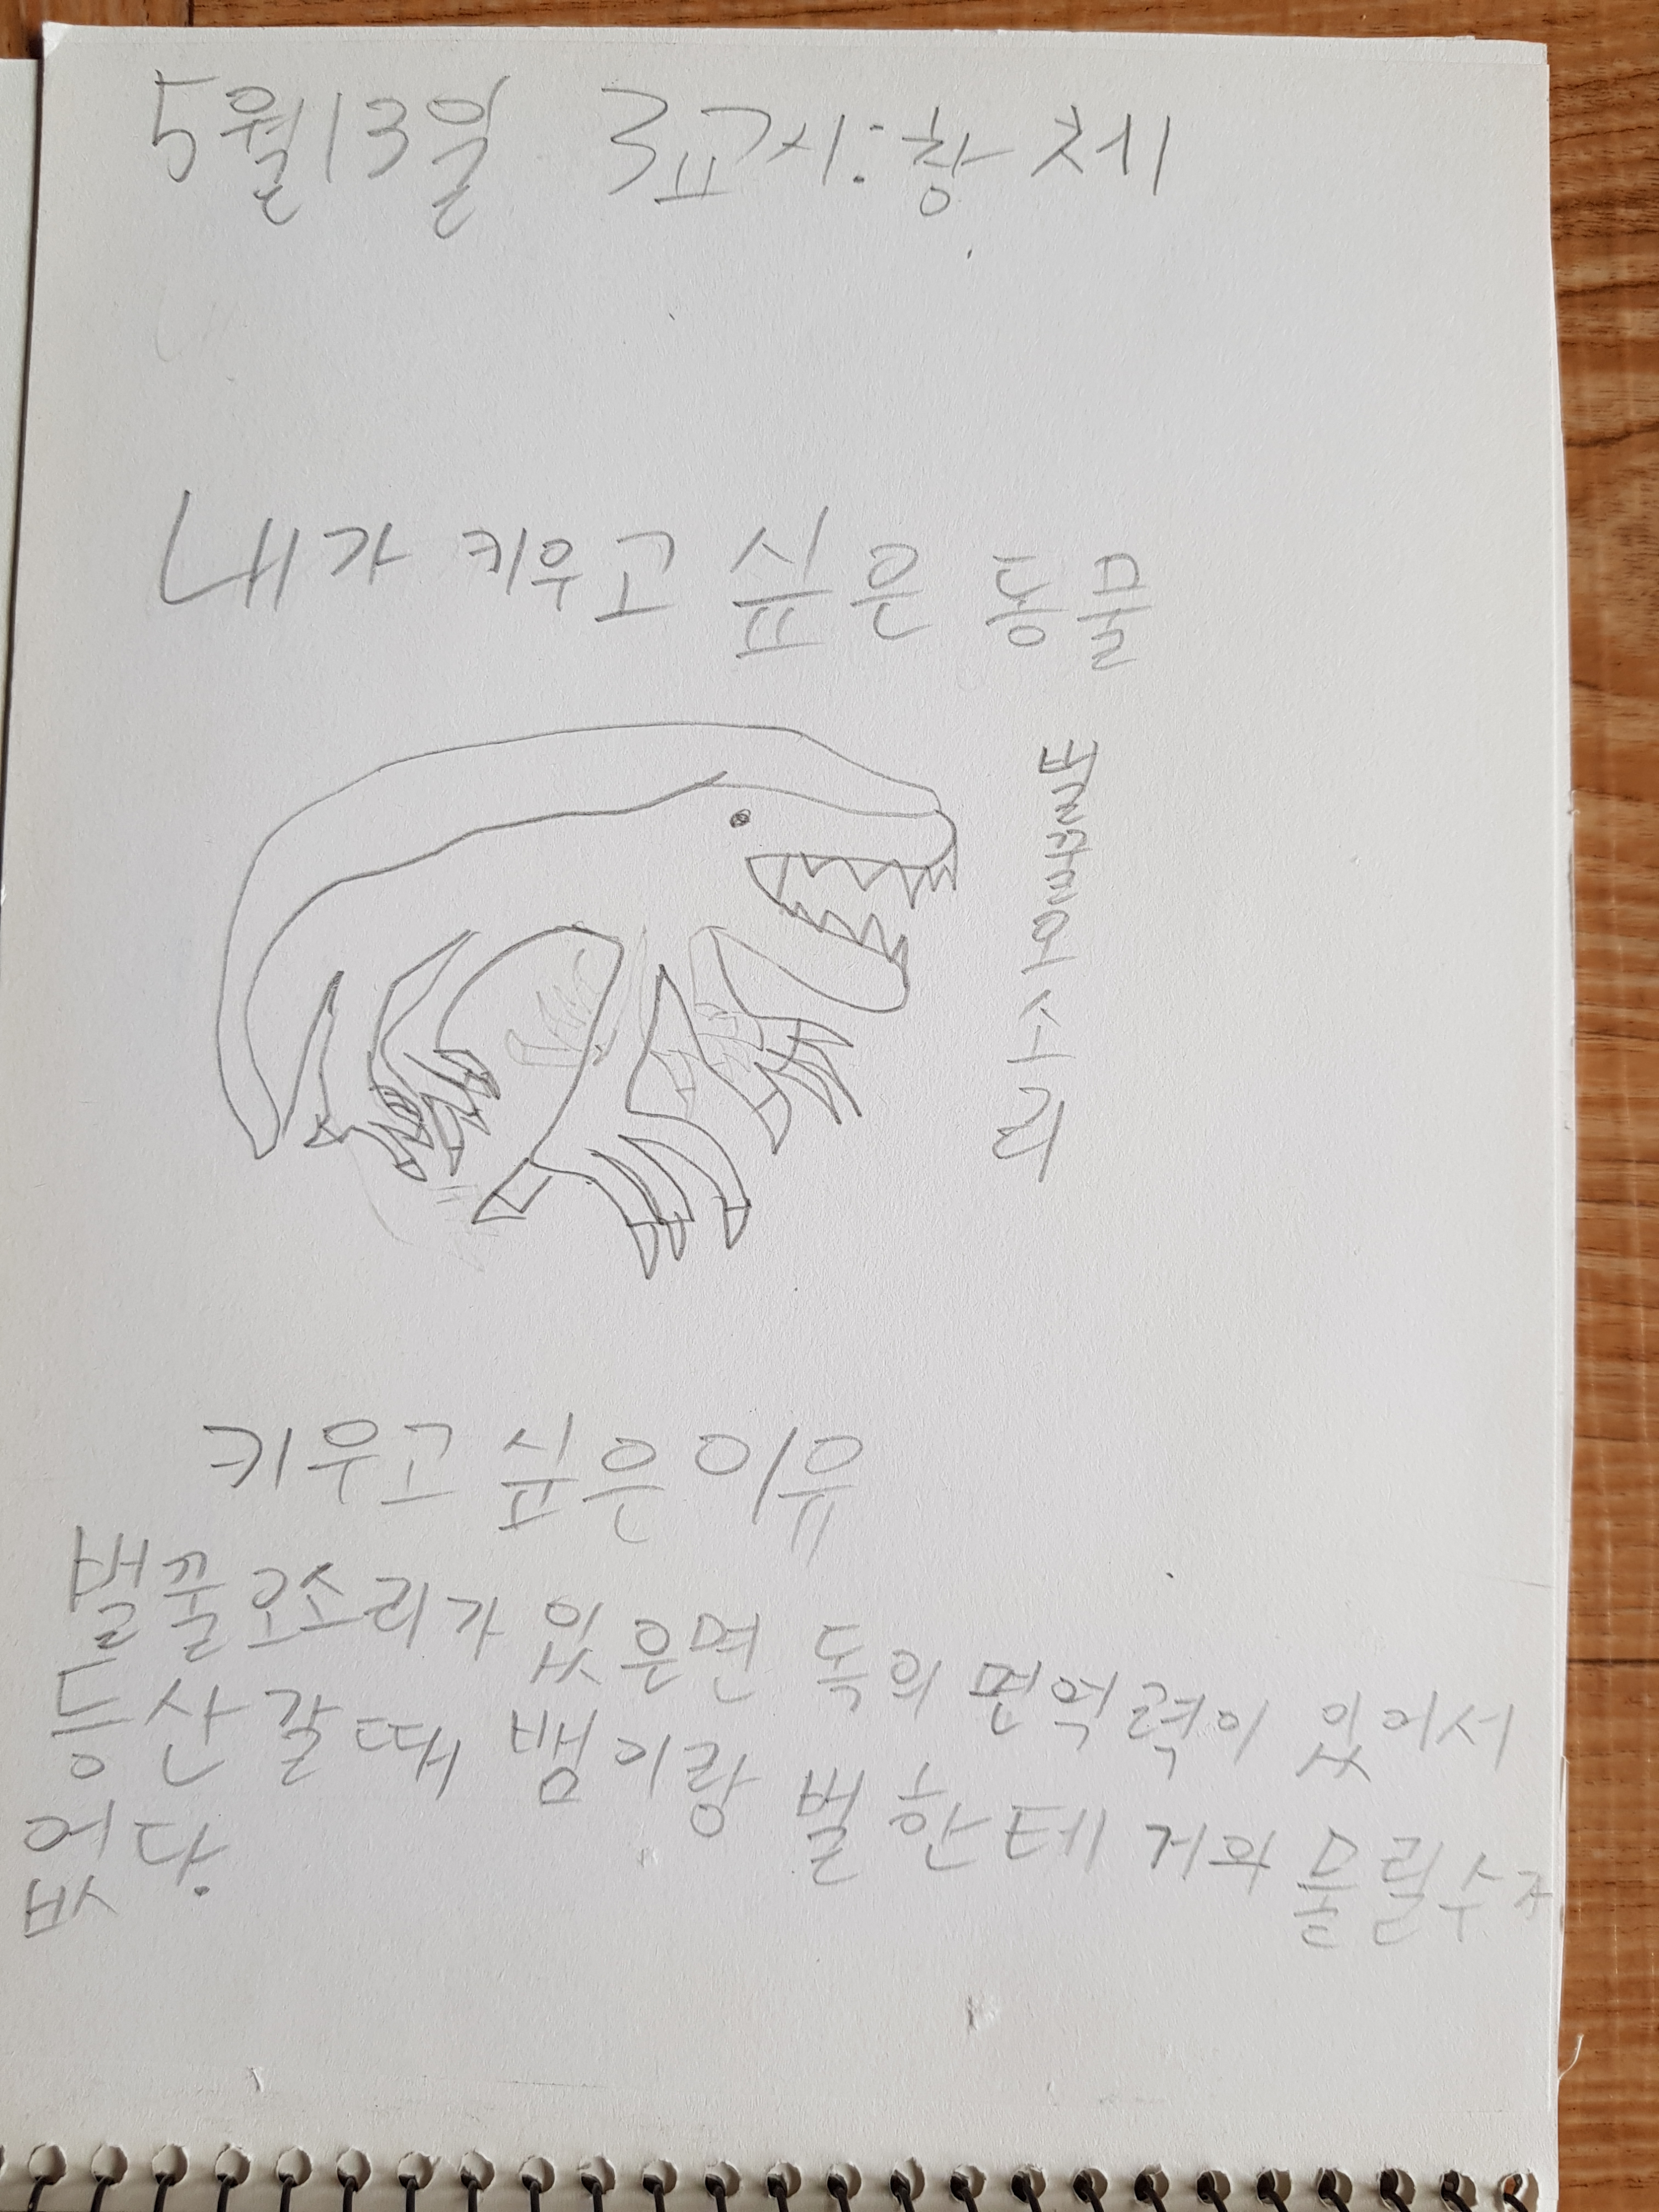 5월13일 3교시:창체
내가 키우고 싶은 동물
벌꿀오소리
키우고 싶은이유
벌꿀오소리가 있은면 독의 면역력이 있어서
등산갈때 뱀이랑 벌한테 거와 물릴수가
없다.